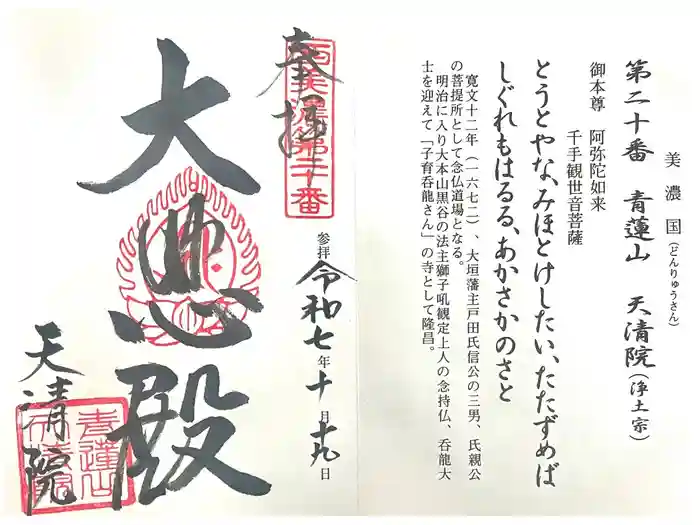 美濃国
第二十番 青蓮山 天清院(浄土宗)
(どんりゅうさん)
御本尊 阿弥陀如来
千手観世音菩薩
とうとやな、みほとけしたい、たたずめば
しぐれもはるる、あかさかのさと
寛文十二年(一六七二)、大垣藩主戸田氏信公の三男、氏親公
の菩提所として念仏道場となる。
明治に入り大本山黒谷の法主獅子吼観定上人の念持仏、呑龍大
士を迎えて「子育呑龍さん」の寺として隆昌。
西美濃第二十番
奉拝
参拝 令和七年十月十九日
大悲殿
天清院
青蓮山
天清院